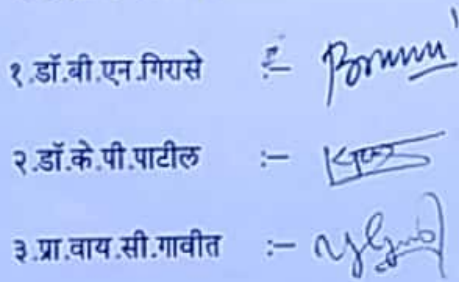 १.डॉ.बी.एन.गिरासे :-
२.डॉ.के.पी.पाटील :-
३.प्रा.वाय.सी.गावीत :-